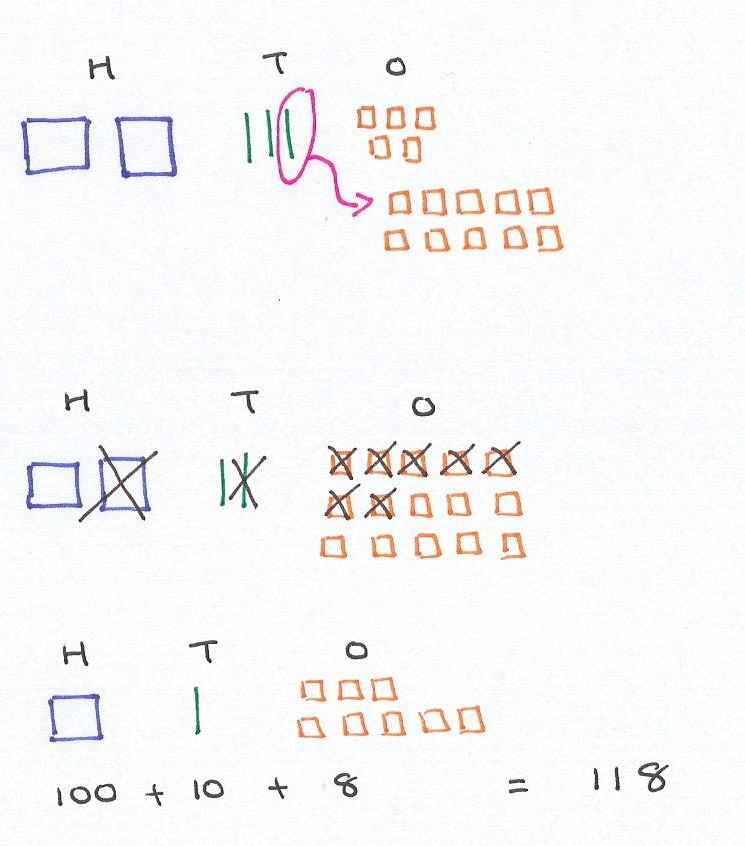 H T O
H T O
H T O
100 + 10 + 8 = 118